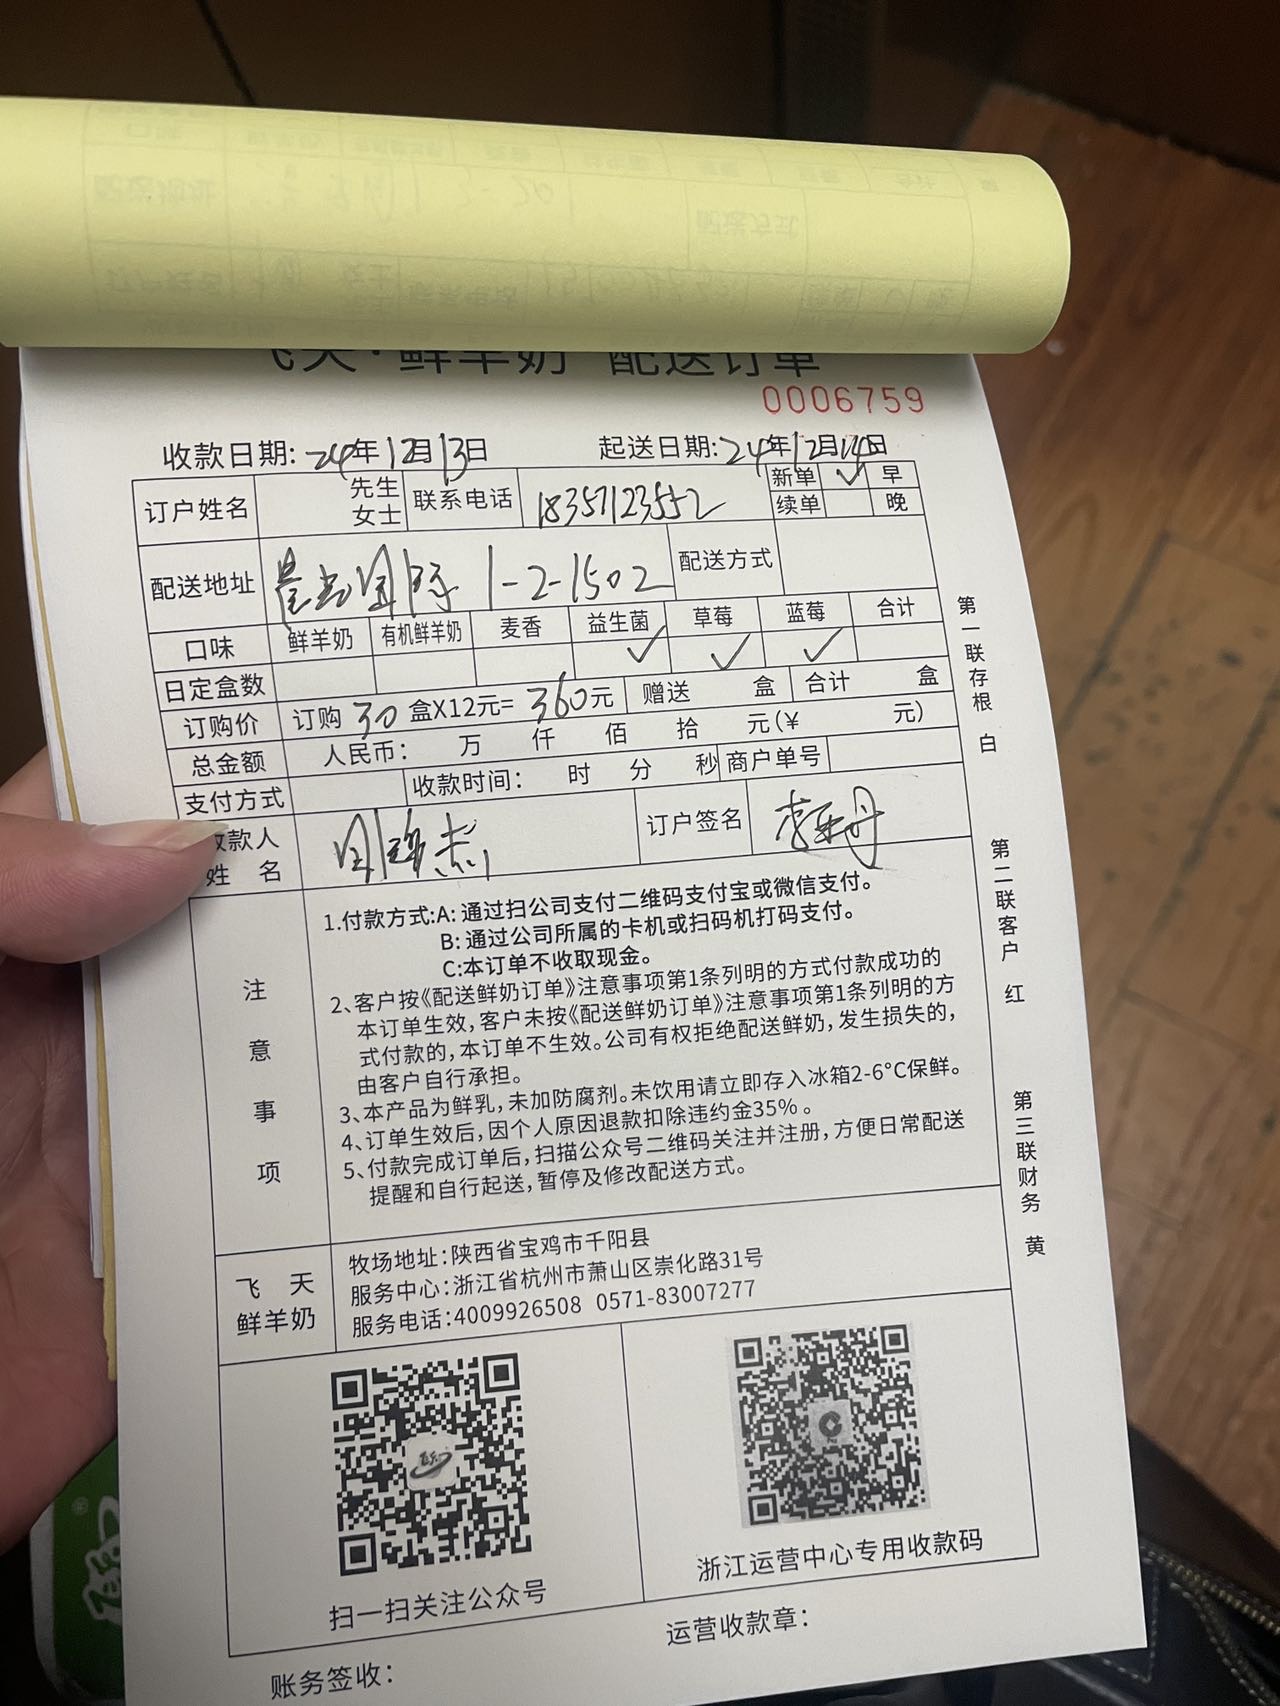 飞天·鲜羊奶 配送订单
0006759
收款日期: 24年12月13日 起送日期: 24年12月14日
订户姓名 先生 女士 联系电话 18357123552 新单 ✓ 早
续单 晚
配送地址 国际 1-2-1502 配送方式
口味 鲜羊奶 有机鲜羊奶 麦香 益生菌 草莓 蓝莓 合计
日定盒数 ✓ ✓ ✓
订购价 订购 30 盒X12元= 360元 赠送 盒 合计 盒
总金额 人民币: 万 仟 佰 拾 元(¥ 元)
支付方式 收款时间: 时 分 秒 商户单号
收款人
姓 名
订户签名
注意事项
1.付款方式:A: 通过扫公司支付二维码支付宝或微信支付。
B: 通过公司所属的卡机或扫码机打码支付。
C:本订单不收取现金。
2、客户按《配送鲜奶订单》注意事项第1条列明的方式付款成功的
本订单生效,客户未按《配送鲜奶订单》注意事项第1条列明的方
式付款的,本订单不生效。公司有权拒绝配送鲜奶,发生损失的,
由客户自行承担。
3、本产品为鲜乳,未加防腐剂。未饮用请立即存入冰箱2-6°C保鲜。
4、订单生效后,因个人原因退款扣除违约金35%。
5、付款完成订单后,扫描公众号二维码关注并注册,方便日常配送
提醒和自行起送,暂停及修改配送方式。
飞 天
鲜羊奶
牧场地址:陕西省宝鸡市千阳县
服务中心:浙江省杭州市萧山区崇化路31号
服务电话:4009926508 0571-83007277
扫一扫关注公众号
浙江运营中心专用收款码
账务签收:
运营收款章:
第一联存根 白
第二联客户 红
第三联财务 黄